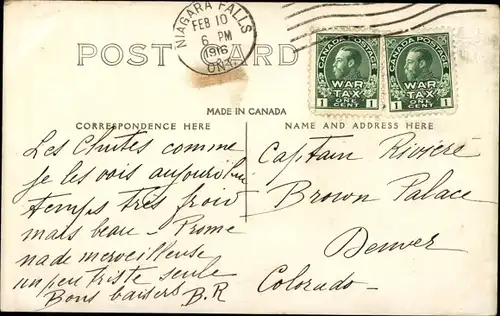 NIAGARA FALLS
FEB 10
6 PM
1916
ONT.
POST CARD
CANADA POSTAGE
WAR
TAX
1 ONE CENT 1
CANADA POSTAGE
WAR
TAX
1 ONE CENT 1
MADE IN CANADA
CORRESPONDENCE HERE
NAME AND ADDRESS HERE
Les Chutes comme
je les vois aujourd'hui
temps très froid
mais beau - Prome
nade merveilleuse
un peu triste seule
Bons baisers B.R
Captain Rivière
Brown Palace
Denver
Colorado-